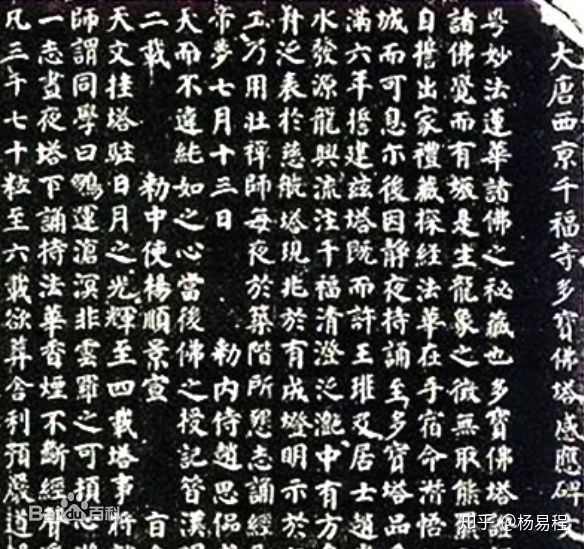 大唐西京千福寺多寶佛塔感應碑文
粵妙法蓮華諸佛之秘藏也多寶佛塔證
諸佛覺而有娠是生龍象之徵無取熊羆
自誓出家禮藏探經法華在手宿命潛悟
城而可息尒後因靜夜持誦至多寶塔品
滿六年誓建茲塔既而許王瓘及居士趙
水發源龍興流注千福清澄泛灔中有方
舟泛表於慈航塔現兆於有成燈明示於
工乃用壯禪師每夜於築階所懇志誦經
帝夢七月十三日 勅內侍趙思侃
天而不違純如之心當後佛之授記昔漢
二載 勅中使楊順景宣 百
天文挂塔駐日月之光輝至四載塔事將
師謂同學曰鵬運滄溟非雲羅之可頓心
一志晝夜塔下誦持法華香煙不斷經聲
凡三千七十粒至六載欲葬舍利預嚴道場
Baidu百科
知乎 @杨易程